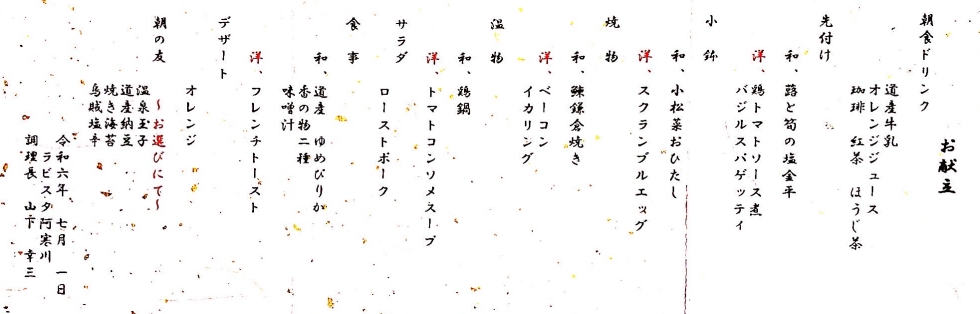 お献立
朝食ドリンク
道産牛乳
オレンジジュース
珈琲 紅茶 ほうじ茶
先付け
和、蕗と筍の塩金平
洋、鶏トマトソース煮
バジルスパゲッティ
小鉢
和、小松菜おひたし
洋、スクランブルエッグ
焼物
和、鰊鎌倉焼き
洋、ベーコン
イカリング
温物
和、鶏鍋
洋、トマトコンソメスープ
サラダ
ローストポーク
食事
和、道産 ゆめぴりか
香の物二種
味噌汁
洋、フレンチトースト
デザート
オレンジ
朝の友 〜お選びにて〜
温泉玉子
道産納豆
焼き海苔
烏賊塩辛
令和六年 七月 一日
ラビスタ阿寒川
調理長 山下 幸三